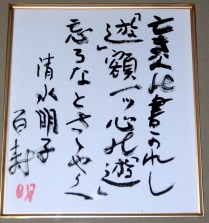 亡き人の書かれし
「遊」額一ツ心の遊び
忘るなとささやく
清水明子
百寿
明